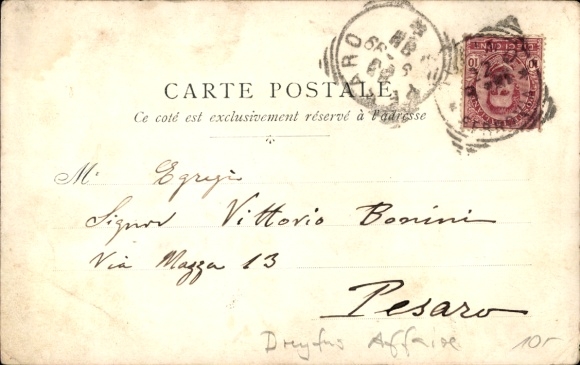 CARTE POSTALE
Ce coté est exclusivement réservé à l'adresse
M Egregio
Signor Vittorio Bonini
Via Mazza 13
Pesaro
Dreyfus Affaire 10-
PESARO
99
DIECI CENT.
10 10